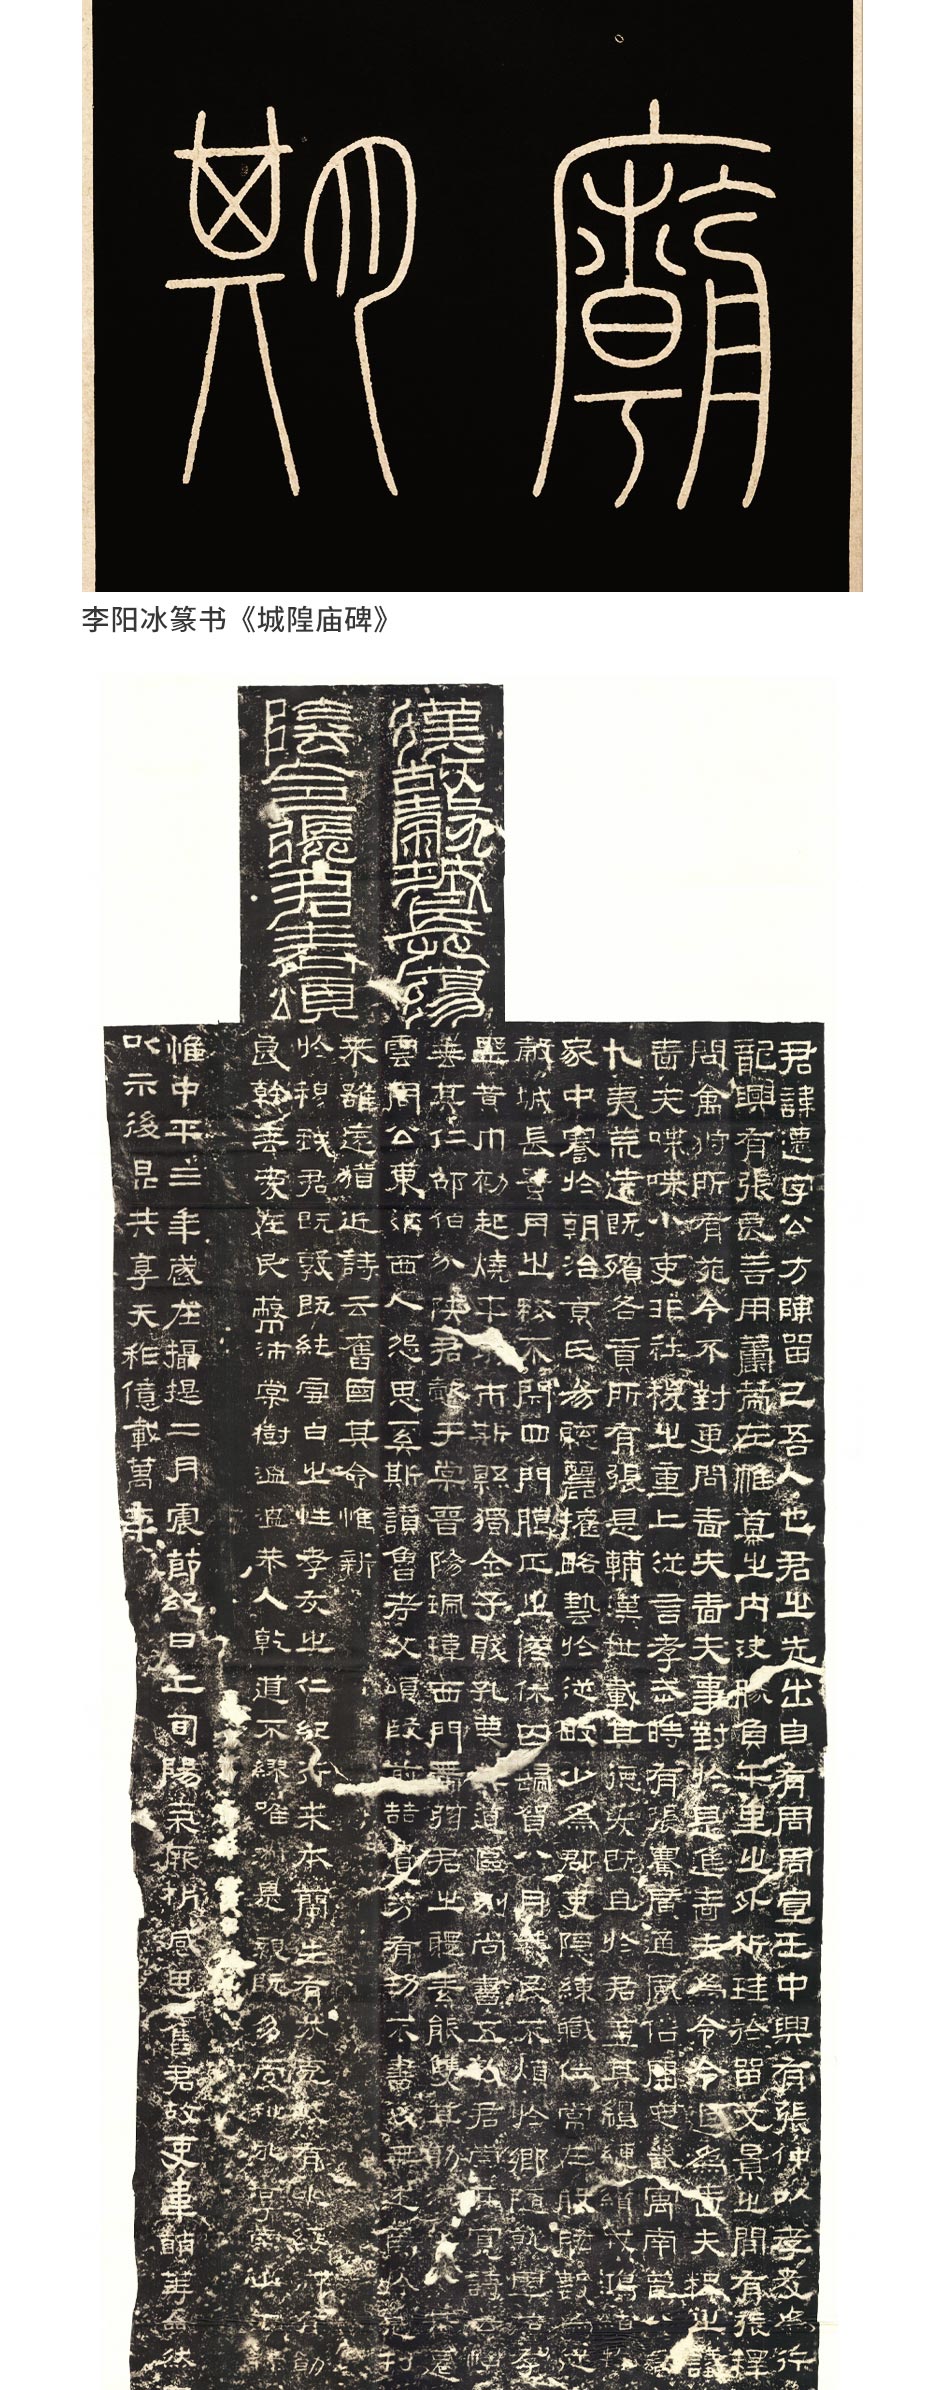 廟 期
李阳冰篆书《城隍庙碑》
漢故穀城長蕩
陰令張君表頌
君諱遷字公方陳留己吾人也君之先出自有周周宣王中興有張仲以孝友為行
龍興有張良善用籌策在帷幕之內決勝負千里之外析珪於留文景之間有張釋
問禽狩所有苑令不對更問嗇夫嗇夫事對於是進嗇夫為令令退為嗇夫釋之議
嗇夫喋喋小吏非社稷之重上從言孝武時有張騫廣通風俗開定畿寓南苞八蠻
九夷荒遠既殯各貢所有張是輔漢世載其德爰既且於君蓋其繵縺纘戎鴻緒
家中謇於朝治京氏易聰麗權略藝於從畋少為郡吏隱練職位常在股肱數為從
穀城長蠶月之務不閉四門臘正之傺休囚歸賀八月筭民不煩於鄉隨就虛落存
野黃巾初起燒平城市斯縣獨全子賤孔蔑其道區別尚書五教君崇其寬詩云愷
垂其仁邵伯分陝君懿于棠晉陽珮瑋西門帶弦君之體素能雙其勛流化八基遷
雲周公東征西人怨思奚斯讚魯考父頌殷前喆遺芳有功不書後無述焉於是刊
來雖遠猶近詩云舊國其命惟新
於穆我君既敦既純雪白之性孝友之仁紀行來本蘭生有芬克岐有兆綏御有勛
良幹垂愛在民蔽沛棠樹溫溫恭人乾道不繆唯淑是親既多受祉永享南山干祿
惟中平三年歲在攝提二月震節紀日上旬陽氣厥析感思舊君故吏韋萌等僉然
以示後昆共享天祚億載萬年